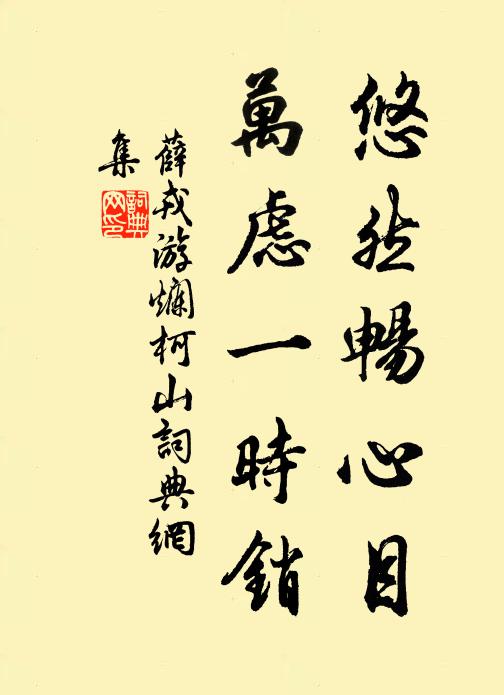 悠然暢心目
萬慮一時銷
薛戎游爛柯山詞典網
集
詞典網印